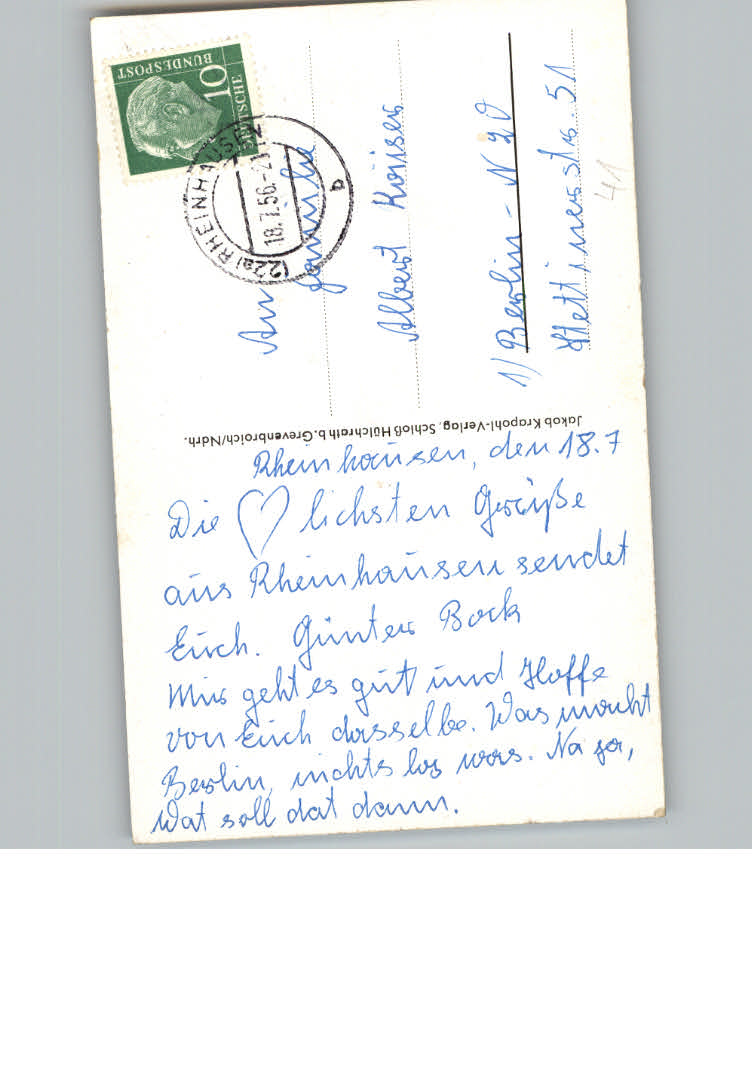 DEUTSCHE
BUNDESPOST
10
(22a) RHEINHAUSEN
18.7.56.-21
b
An
Familie
Albert
1) Berlin - N 20
Stettinerstr. 51
41
Jakob Krapohl-Verlag, Schloß Hülchrath b. Grevenbroich/Ndrh.
Rheinhausen, den 18.7
Die ♡ lichsten Grüße
aus Rheinhausen sendet
Euch. Günter Bock
Mir geht es gut und Hoffe
von Euch dasselbe. Was macht
Berlin, nichts los was. Na ja,
Wat soll dat dann.